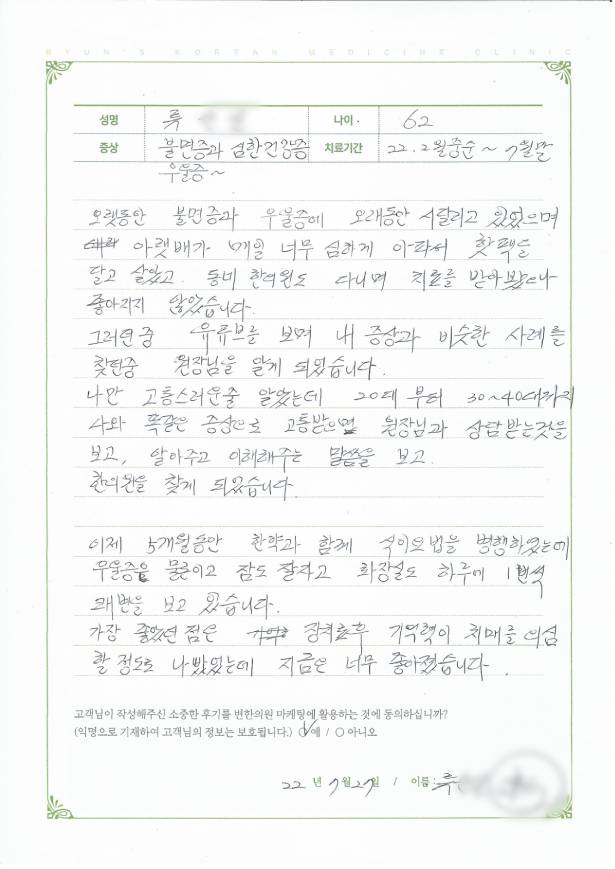 BYUN'S KOREAN MEDICINE CLINIC
성명 류 나이 · 62
증상 불면증과 심한건강증 치료기간 22.2월중순~7월말
우울증~
오랫동안 불면증과 우울증에 오래동안 시달리고 있었으며
아랫배가 매일 너무 심하게 아파서 핫팩을
달고 살았고. 동네 한의원도 다니며 치료를 받아봤으나
좋아지지 않았습니다.
그러던중 유튜브를 보며 내 증상과 비슷한 사례를
찾던중 원장님을 알게 되었습니다.
나만 고통스러운줄 알았는데 20대부터 30~40대까지
나와 똑같은 증상으로 고통받으며 원장님과 상담받는것을
보고, 알아주고 이해해주는 말씀을 보고.
한의원을 찾게 되었습니다.
이제 5개월동안 한약과 함께 식이요법을 병행하였는데
우울증은 물론이고 잠도 잘자고 화장실도 하루에 1번씩
쾌변을 보고 있습니다.
가장 좋았던 점은 장치료후 기억력이 치매를 의심
할 정도로 나빴었는데 지금은 너무 좋아졌습니다.
고객님이 작성해주신 소중한 후기를 변한의원 마케팅에 활용하는 것에 동의하십니까?
(익명으로 기재하여 고객님의 정보는 보호됩니다.) ○ 예 / ○ 아니오
22 년 7 월 27 일 / 이름 : 류